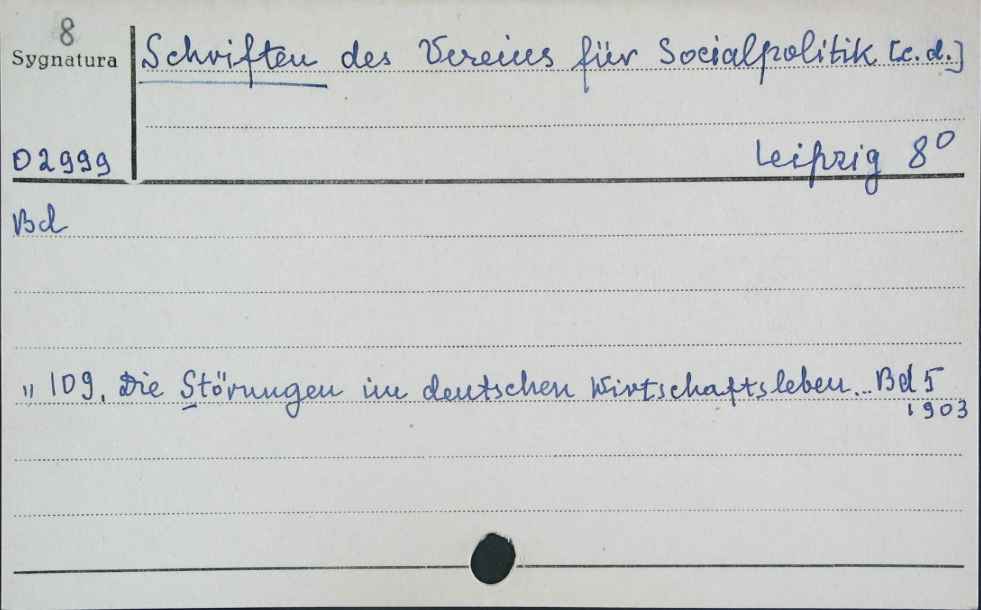 8
Sygnatura
Schriften des Vereins für Socialpolitik [c.d.]
02999
Leipzig 8⁰
Bd
" 109. Die Störungen im deutschen Wirtschaftsleben... Bd 5
1903